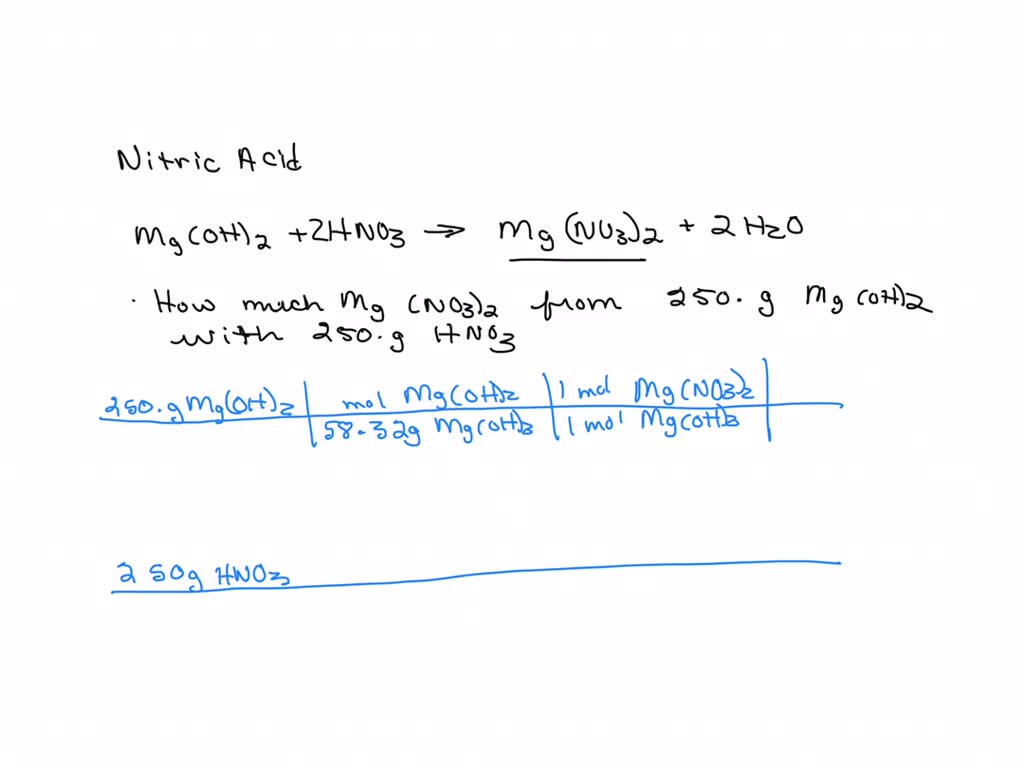 Nitric Acid
Mg(OH)2 + 2HNO3 → Mg(NO3)2 + 2H2O
· How much Mg (NO3)2 from 250. g Mg (OH)2
with 250. g HNO3
250. g Mg(OH)2 | mol Mg(OH)2 | 1 mol Mg(NO3)2 |
58.32g Mg(OH)2 | 1 mol Mg(OH)2 |
250g HNO3